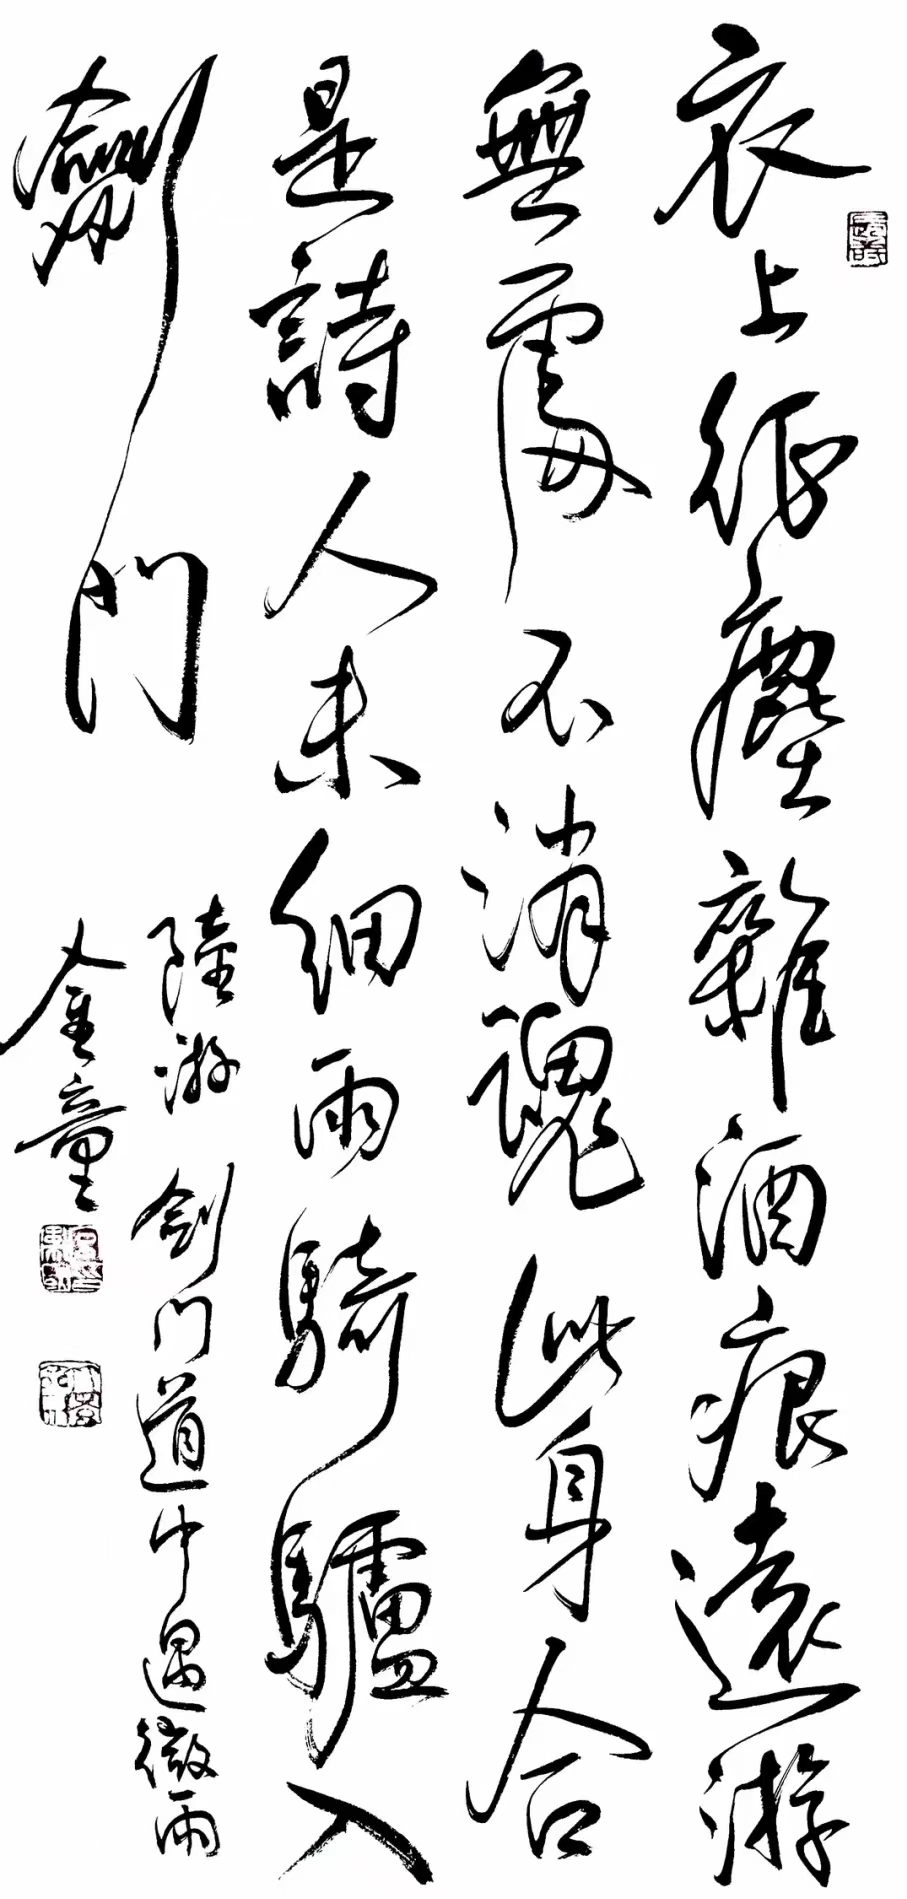 衣上征塵雜酒痕遠游
無處不消魂此身合
是詩人未細雨騎驢入
劍門
陸游 劍门道中遇微雨
金童